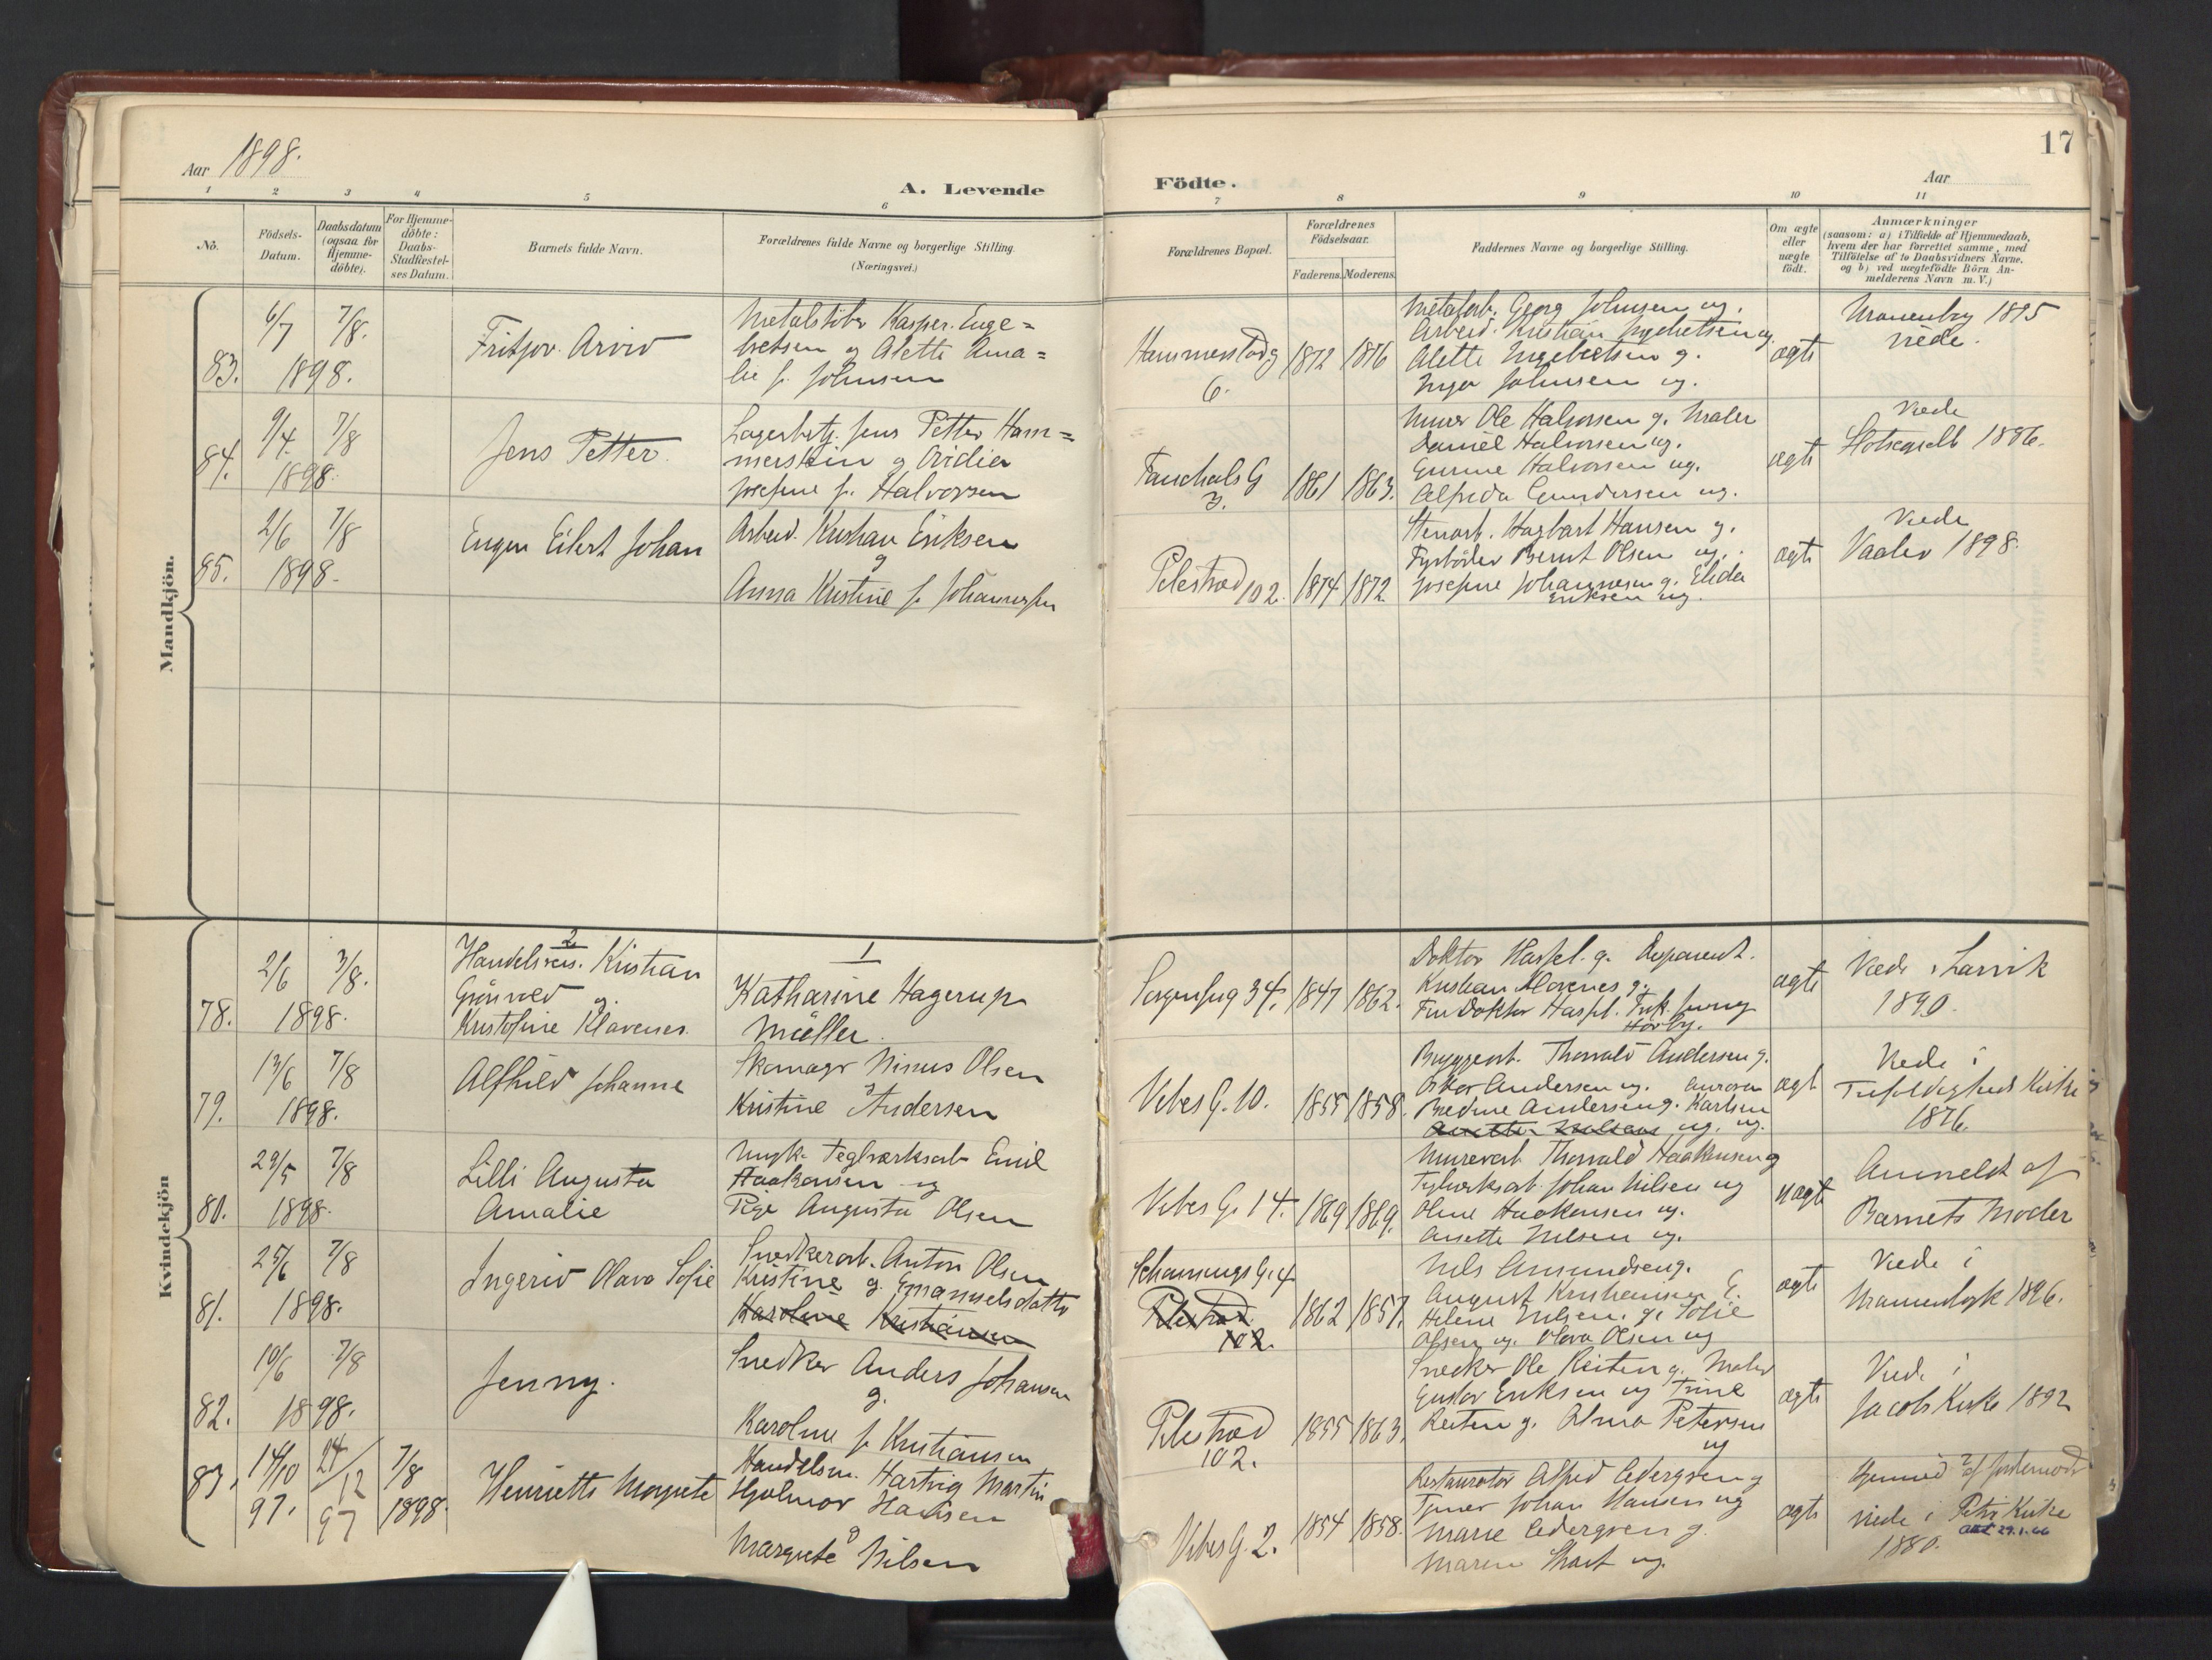 17
Aar 1898.
A. Levende
Födte.
Aar
1 2 3 4 5 6 7 8 9 10 11
No.
Födsels-
Datum.
Daabsdatum
(ogsaa for
Hjemme-
döbte).
For Hjemme-
döbte:
Daabs-
Stadfæstel-
ses Datum.
Barnets fulde Navn.
Forældrenes fulde Navne og borgerlige Stilling.
(Næringsvei.)
Forældrenes Bopæl.
Forældrenes
Födselsaar.
Faderens. Moderens.
Faddernes Navne og borgerlige Stilling.
Om ægte
eller
uægte
födt.
Anmærkninger
(saasom: a) i Tilfælde af Hjemmedaab,
hvem der har forrettet samme, med
Tilföielse af to Daabsvidners Navne.
og b) ved uægtefödte Börn An-
melderens Navn m. V.)
Mandkjön.
83.
6/7 7/8.
1898.
Fritjov Arvid
Kasper Enge=
bretsen og Alette Ama=
lie f. Johnsen
6.
1872 1876
Georg Johnsen ug.
Arbeid. Kristian Ingebretsen ug.
Alette Ingebretsen g.
Inga Johnsen ug.
ægte
1895
viede.
84.
9/4. 7/8
1898.
Jens Petter.
Lagerbetj. Jens Petter Ham=
merstein og
Josefine f. Halvorsen
3.
1861 1863.
Murer Ole Halvorsen g. Maler
Daniel Halvorsen ug.
Gurine Halvorsen ug.
Alfrida Gundersen ug.
ægte
Viede
1886.
85.
2/6 7/8
1898.
Eugen Eilert Johan
Arbeid. Kristian Eriksen
g
Anna Kristine f. Johannesen
Pilestræd 102.
1874 1872
Stenarb. Hagbart Hansen g.
Fyrböder Bernt Olsen ug.
Josefine Johannesen g. Elida
Eriksen ug.
ægte
Viede
Vaaler 1898.
Kvindekjön
78.
2/6 3/8.
1898.
2
Handelsreis. Kristian
Grönvold g.
Kristofine Klavenes.
1
Katharine Hagerup
Müller.
Sorgenfrig 34.
1847 1862.
Doktor g. Disponent.
Kristian Klavenes g.
Fru Doktor Frk. Jenny
ægte
Viede i Larvik
1890.
79.
13/6 7/8
1898.
Alfhild Johanne
Skomager Ninus Olsen
g
Kristine Andersen
Vibes G. 10.
1855 1858.
Byggearb. Thorvald Andersen g.
Oskar Andersen ug. Aurora
Bredine Andersen g. Karlsen
ug. ug.
ægte
Viede i
Trefoldigheds Kirke
1876.
80.
29/5 7/8
1898.
Lilli Augusta
Amalie
Ungk. Teglværksarb Emil
Haakonsen og
Pige Augusta Olsen
Vibes G. 14.
1869 1869.
Murerarb Thorvald Haakonsen g
Teglværksarb. Johan Nilsen ug
Oline Haakonsen ug.
Anette Nilsen ug.
uægte
Anmeldt af
Barnets Moder
81.
25/6 7/8
1898.
Ingerid Olava Sofie
Snedkerarb. Anton Olsen
Kristine g. Emanuelsdatter
Karoline Kristiansen
Schønnings G. 4
Pilestræd.
102.
1862 1857.
Nils Amundsen g.
August Kristiansen E.
Helene Nilsen. g. Sofie
Olsen ug. Olava Olsen ug
ægte
Viede i
1896.
82.
10/6 7/8
1898.
Jenny.
Snedker Anders Johansen
g.
Karoline f. Kristiansen
Pilestræd
102.
1855 1863.
Snedker Ole Reiten g. Maler
Gustav Eriksen ug Trine
Reiten g. Alma Petersen
ug
ægte
Viede i
Jacobs Kirke 1892
83.
14/10 24/12 7/8
97. 97 1898.
Henriette Margrete
Handelsm. Hartvig Martin
Hjalmar Hansen
g
Margrete Nilsen
Vibes G. 2.
1854 1858.
Restauratør Alfred Cedergren g
Johan Hansen ug
Marie Cedergren g.
Maren ug.
ægte
Hjemmed af Jordemoder
viede i Petri Kirke
Att 29.1.66
1880.